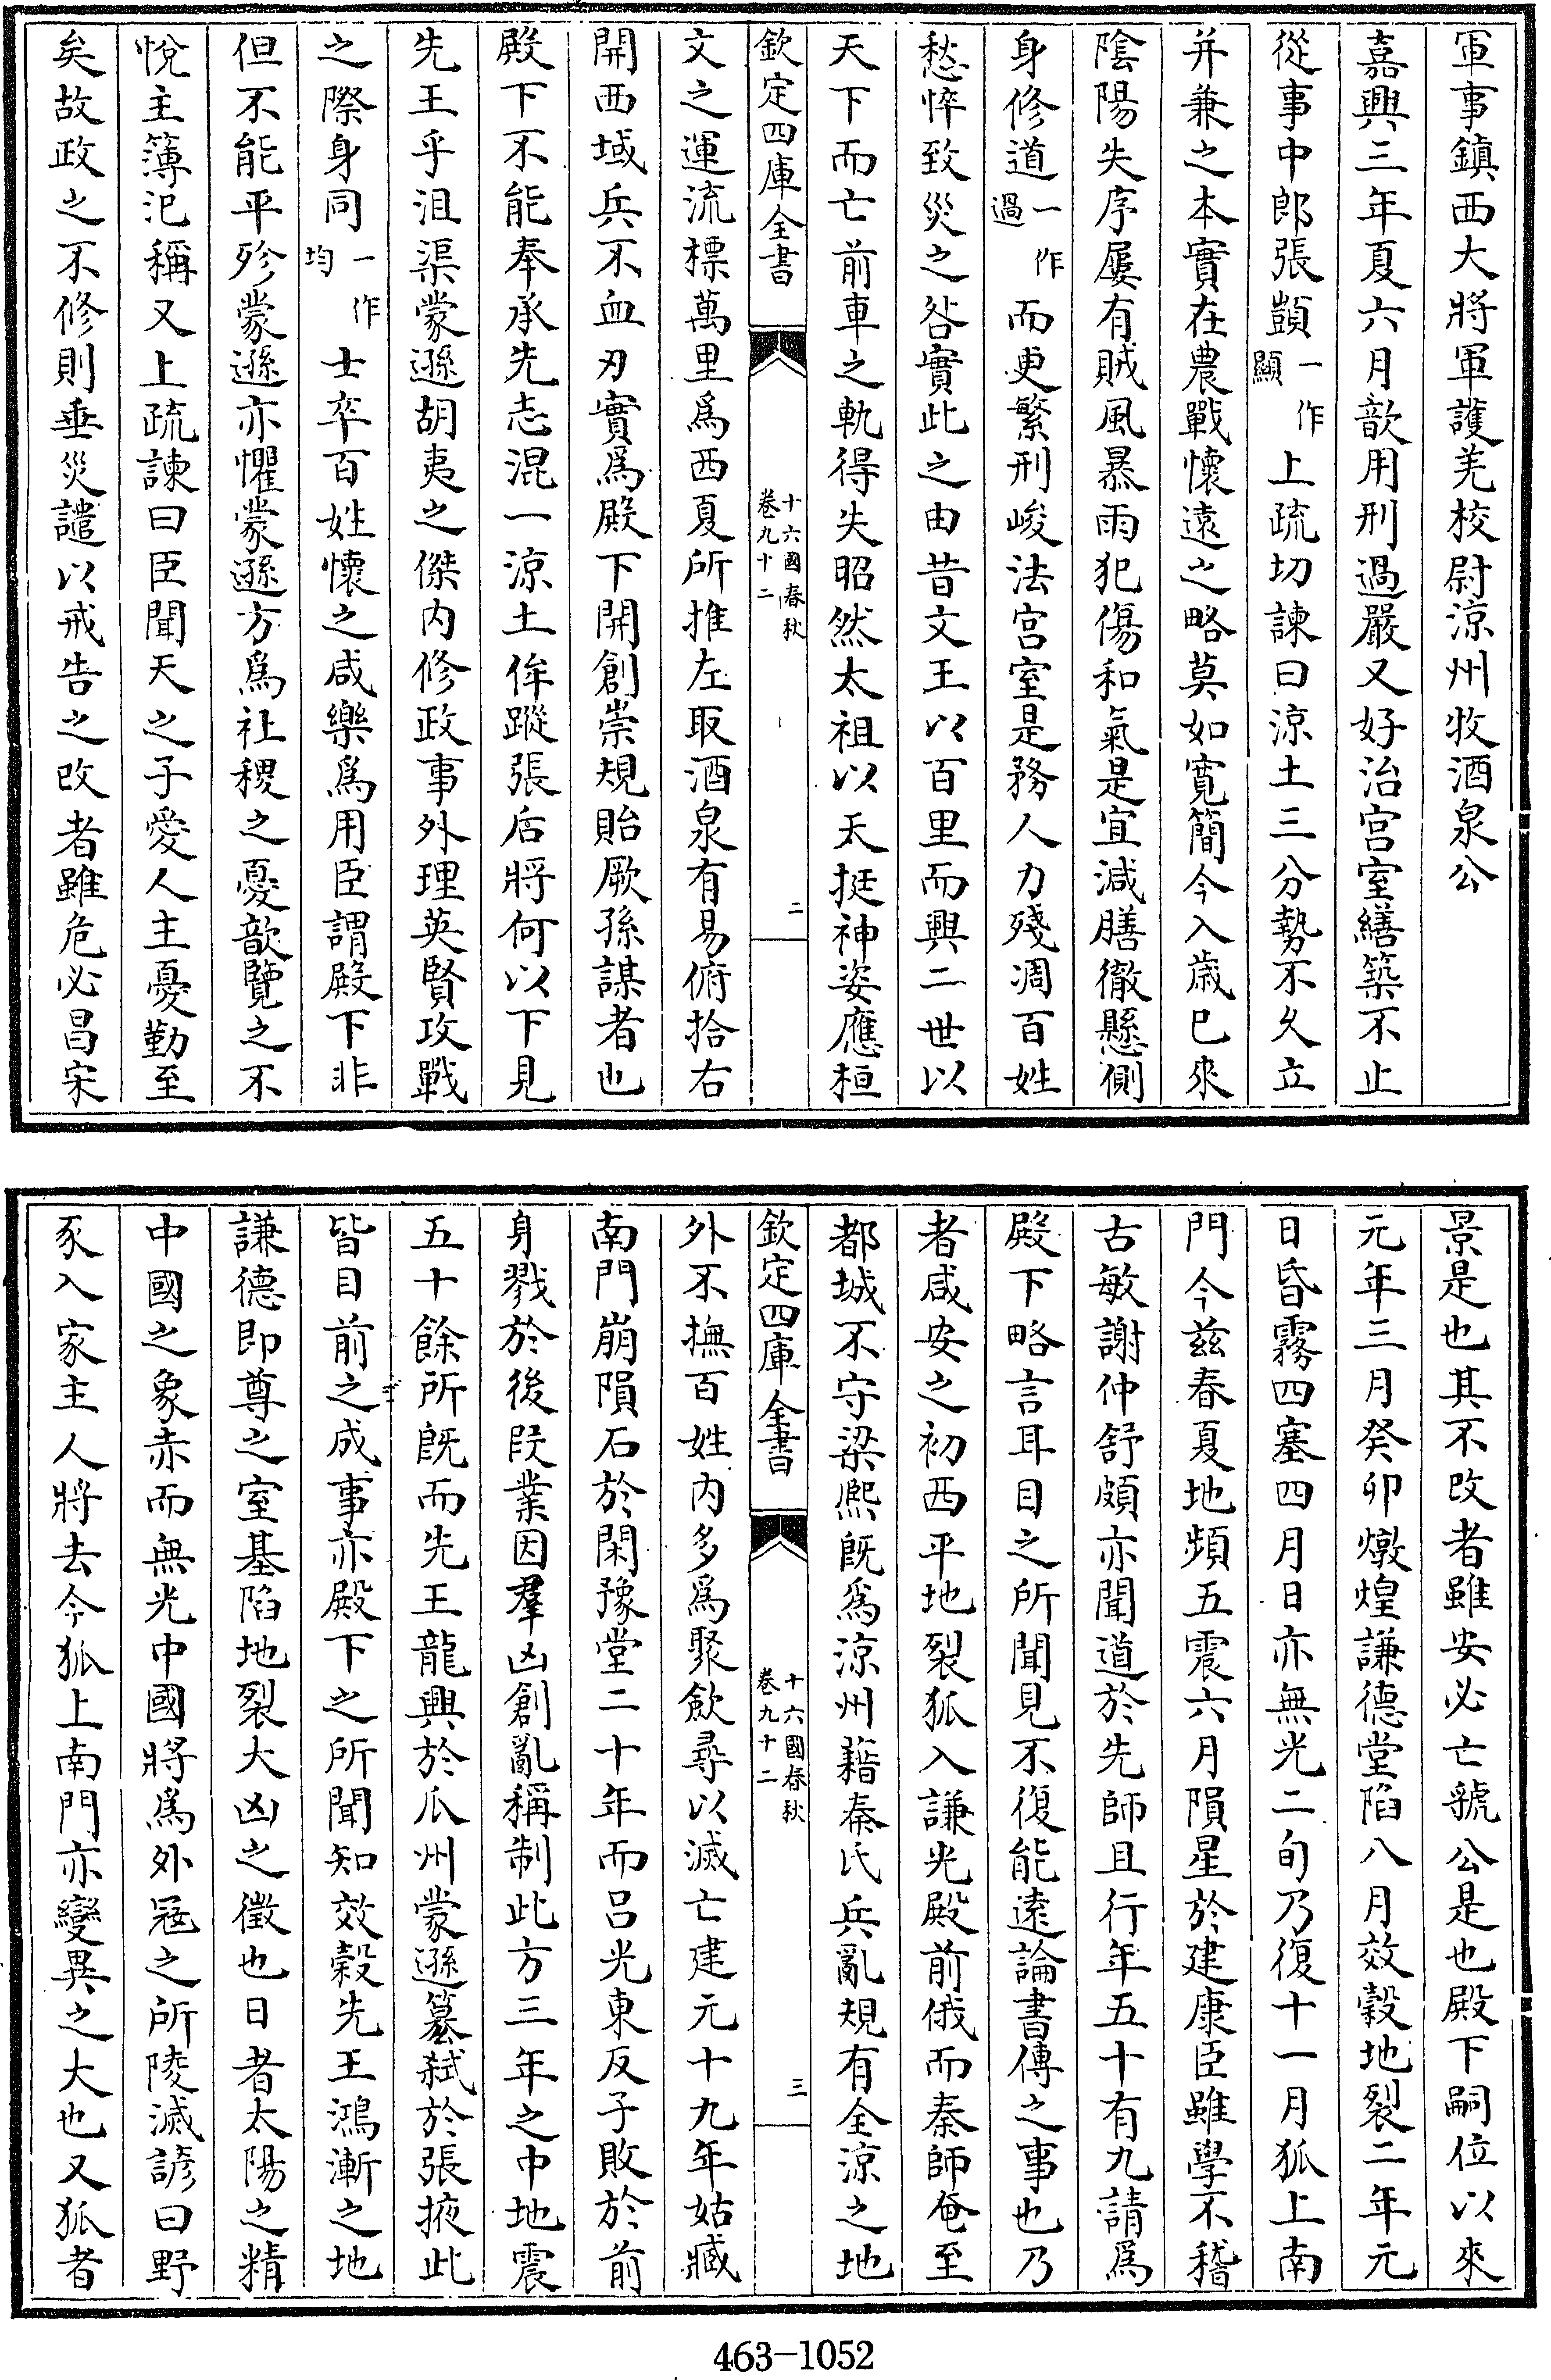 軍事鎮西大將軍護羌校尉涼州牧酒泉公
嘉興三年夏六月歆用刑過嚴又好治宫室繕築不止
從事中郎張顗一作顯上疏切諫曰涼土三分勢不久立
并兼之本實在農戰懷遠之略莫如寛簡今入歲已來
陰陽失序屢有賊風暴雨犯傷和氣是宜減膳徹懸側
身修道一作過而更繁刑峻法宫室是務人力殘凋百姓
愁悴致災之咎實此之由昔文王以百里而興二世以
天下而亡前車之軌得失昭然太祖以天挺神姿應桓
欽定四庫全書
十六國春秋
卷九十二
二
文之運流標萬里爲西夏所推左取酒泉有易俯拾右
開西域兵不血刃實爲殿下開創崇規貽厥孫謀者也
殿下不能奉承先志混一涼土侔蹤張后將何以下見
先王乎沮渠蒙遜胡夷之傑内修政事外理英賢攻戰
之際身同一作均士卒百姓懷之咸樂爲用臣謂殿下非
但不能平殄蒙遜亦懼蒙遜方爲社稷之憂歆覽之不
悅主簿氾稱又上疏諫曰臣聞天之子愛人主憂勤至
矣故政之不修則垂災譴以戒告之改者雖危必昌宋
景是也其不改者雖安必亡虢公是也殿下嗣位以來
元年三月癸卯燉煌謙德堂陷八月效穀地裂二年元
日昏霧四塞四月日亦無光二旬乃復十一月狐上南
門今兹春夏地頻五震六月隕星於建康臣雖學不稽
古敏謝仲舒頗亦聞道於先師且行年五十有九請爲
殿下略言耳目之所聞見不復能遠論書傳之事也乃
者咸安之初西平地裂狐入謙光殿前俄而秦師奄至
都城不守梁熈旣爲涼州藉秦氏兵亂規有全涼之地
欽定四庫全書
十六國春秋
卷九十二
三
外不撫百姓内多爲聚歛尋以滅亡建元十九年姑臧
南門崩隕石於閑豫堂二十年而吕光東反子敗於前
身戮於後段業因羣凶創亂稱制此方三年之中地震
五十餘所旣而先王龍興於瓜州蒙遜簒弑於張掖此
皆目前之成事亦殿下之所聞知效穀先王鴻漸之地
謙德即尊之室基陷地裂大凶之徵也日者太陽之精
中國之象赤而無光中國將爲外寇之所陵滅諺曰野
豕入家主人將去今狐上南門亦變異之大也又狐者
463-1052